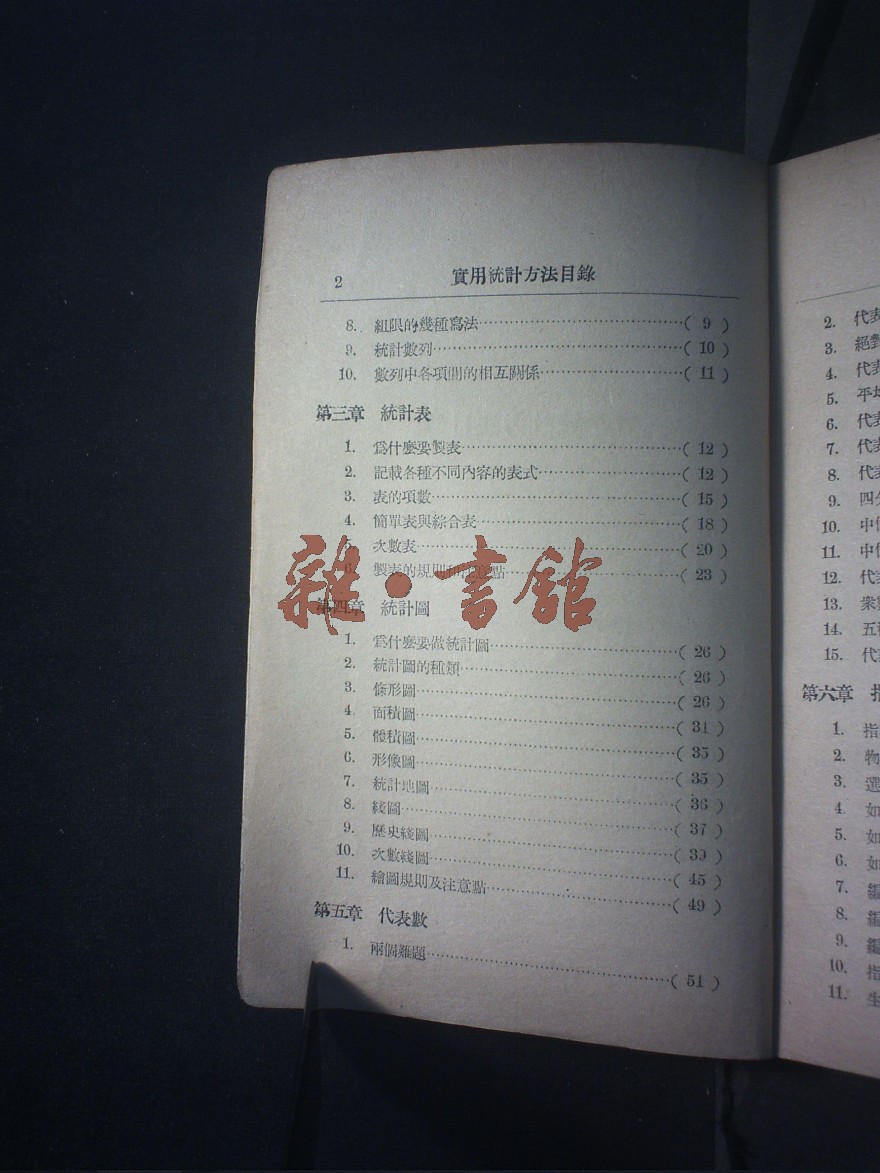 2 實用統計方法目錄
8. 組限的幾種寫法……………………( 9 )
9. 統計數列……………………( 10 )
10. 數列中各項間的相互關係……………………( 11 )
第三章 統計表
1. 爲什麼要製表……………………( 12 )
2. 記載各種不同內容的表式……………………( 12 )
3. 表的項數……………………( 15 )
4. 簡單表與綜合表……………………( 18 )
5. 次數表……………………( 20 )
6. 製表的規則和注意點……………………( 23 )
第四章 統計圖
1. 爲什麼要做統計圖……………………( 26 )
2. 統計圖的種類……………………( 26 )
3. 條形圖……………………( 26 )
4. 面積圖……………………( 31 )
5. 體積圖……………………( 35 )
6. 形像圖……………………( 35 )
7. 統計地圖……………………( 36 )
8. 綫圖……………………( 37 )
9. 歷史綫圖……………………( 39 )
10. 次數綫圖……………………( 45 )
11. 繪圖規則及注意點……………………( 49 )
第五章 代表數
1. 兩個難題……………………( 51 )
雜·書館
2. 代表
3. 絕對
4. 代表
5. 平均
6. 代表
7. 代表
8. 代表
9. 四分
10. 中
11. 中
12. 代表
13. 衆
14. 五種
15. 代表
第六章 指
1. 指
2. 物
3. 選
4. 如
5. 如
6. 如
7. 編
8. 編
9. 編
10. 指
11. 生